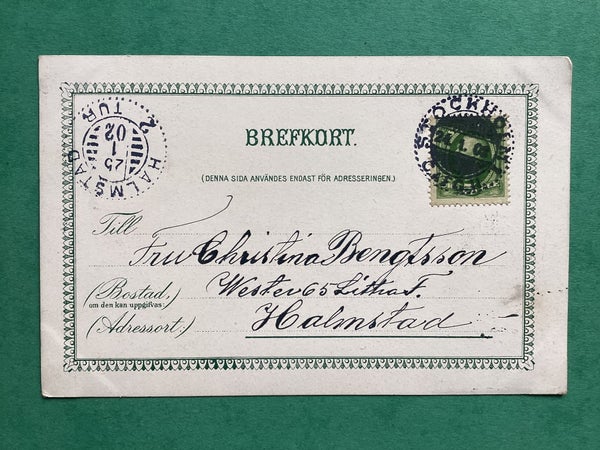 BREFKORT.
(DENNA SIDA ANVÄNDES ENDAST FÖR ADRESSERINGEN.)
HALMSTAD
25
1
02
2 TUR
STOCKHOLM
Till
Fru Christina Bengtsson
(Bostad,
om den kan uppgifvas)
Wester 65 Littra F.
(Adressort)
Halmstad